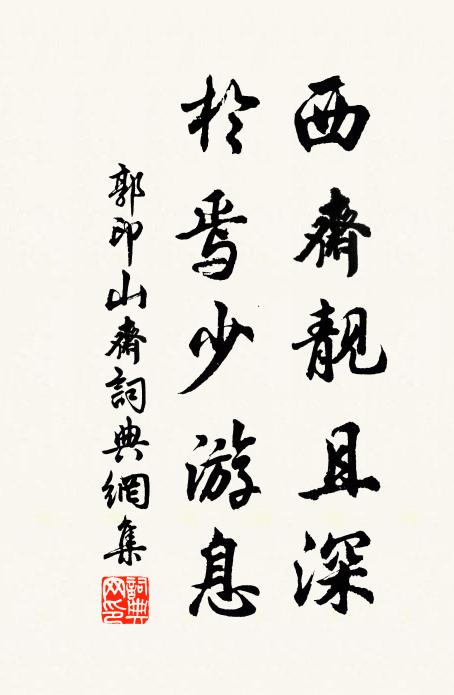 西齋靚且深
於焉少游息
郭印山齋詞典網集
詞典網印